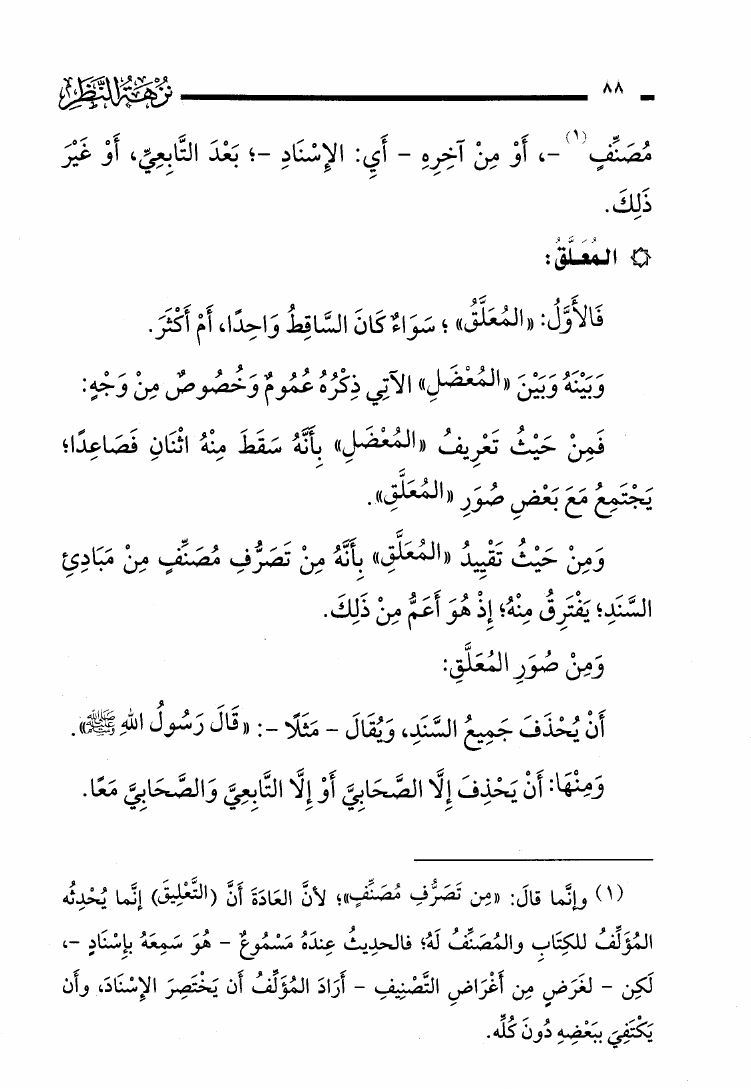 ٨٨ نُزْهَةُ النَّظَرِ
مُصَنِّفٍ(١) –، أَوْ مِنْ آخِرِهِ – أَيِ: الإِسْنَادِ –؛ بَعْدَ التَّابِعِيِّ، أَوْ غَيْرَ
ذَلِكَ.
۞ المُعَلَّقُ:
فَالأَوَّلُ: «المُعَلَّقُ» ؛ سَوَاءٌ كَانَ السَّاقِطُ وَاحِدًا، أَمْ أَكْثَرَ.
وَبَيْنَهُ وَبَيْنَ «المُعْضَلِ» الآتِي ذِكْرُهُ عُمُومٌ وَخُصُوصٌ مِنْ وَجْهٍ:
فَمِنْ حَيْثُ تَعْرِيفُ «المُعْضَلِ» بِأَنَّهُ سَقَطَ مِنْهُ اثْنَانِ فَصَاعِدًا؛
يَجْتَمِعُ مَعَ بَعْضِ صُوَرِ «المُعَلَّقِ».
وَمِنْ حَيْثُ تَقْيِيدُ «المُعَلَّقِ» بِأَنَّهُ مِنْ تَصَرُّفِ مُصَنِّفٍ مِنْ مَبَادِئِ
السَّنَدِ؛ يَفْتَرِقُ مِنْهُ؛ إِذْ هُوَ أَعَمُّ مِنْ ذَلِكَ.
وَمِنْ صُوَرِ المُعَلَّقِ:
أَنْ يُحْذَفَ جَمِيعُ السَّنَدِ، وَيُقَالَ – مَثَلًا –: «قَالَ رَسُولُ اللهِ ﷺ».
وَمِنْهَا: أَنْ يَحْذِفَ إِلَّا الصَّحَابِيَّ أَوْ إِلَّا التَّابِعِيَّ وَالصَّحَابِيَّ مَعًا.
(١) وإنَّما قالَ: «مِن تَصَرُّفِ مُصَنِّفٍ»؛ لأنَّ العَادَةَ أَنَّ (التَّعْلِيقَ) إنَّما يُحْدِثُه
المُؤَلِّفُ للكِتَابِ والمُصَنِّفُ لَهُ؛ فالحديثُ عِندَهُ مَسْمُوعٌ – هُوَ سَمِعَهُ بِإِسْنَادٍ –،
لَكِن – لغَرَضٍ مِن أَغْرَاضِ التَّصْنِيفِ – أَرَادَ المُؤَلِّفُ أَن يَخْتَصِرَ الإِسْنَادَ، وأَن
يَكْتَفِيَ بِبَعْضِهِ دُونَ كُلِّه.